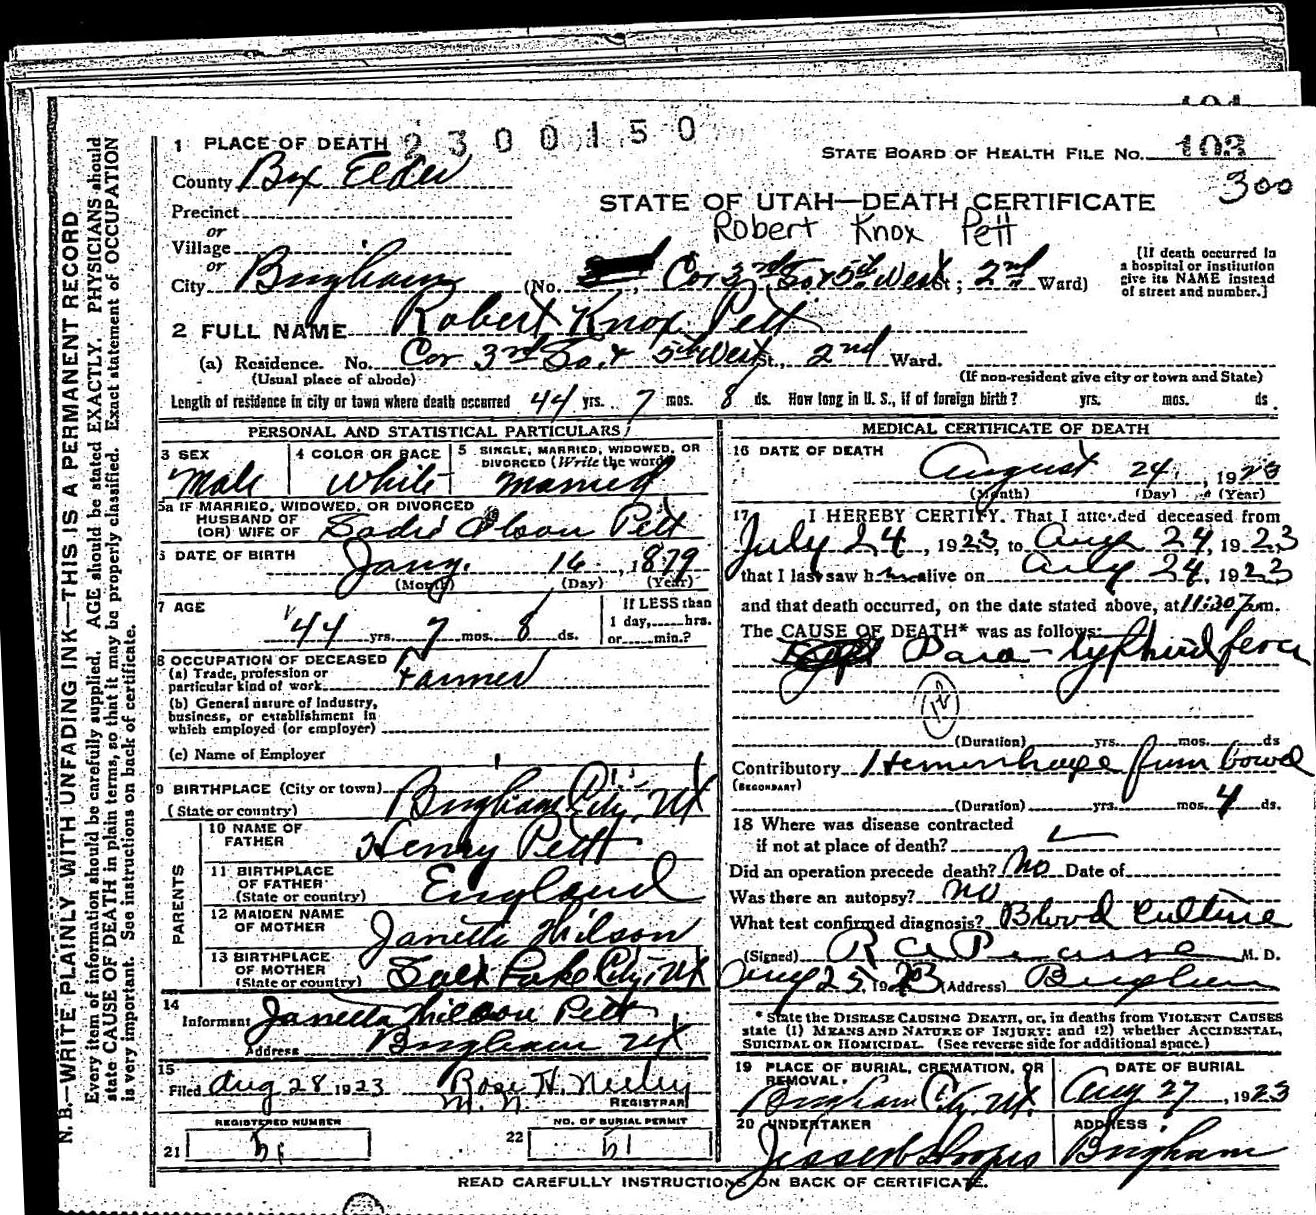 1 PLACE OF DEATH 2300150
STATE BOARD OF HEALTH FILE NO. 103
300
County Box Elder
STATE OF UTAH—DEATH CERTIFICATE
Precinct
or
Robert Knox Pett
Village
or
City Brigham (No. Cor 3rd So. & 5th West St; 2nd Ward)
[If death occurred in a hospital or institution give its NAME instead of street and number.]
2 FULL NAME Robert Knox Pett
(a) Residence. No. Cor 3rd So. & 5th West St., 2nd Ward.
(Usual place of abode) (If non-resident give city or town and State)
Length of residence in city or town where death occurred 44 yrs. 7 mos. 8 ds. How long in U. S., if of foreign birth? yrs. mos. ds.
PERSONAL AND STATISTICAL PARTICULARS
3 SEX Male
4 COLOR OR RACE White
5 SINGLE, MARRIED, WIDOWED, OR DIVORCED (Write the word) Married
5a IF MARRIED, WIDOWED, OR DIVORCED
HUSBAND OF
(OR) WIFE OF Sadie Olson Pett
6 DATE OF BIRTH Jany. 16, 1879
(Month) (Day) (Year)
7 AGE 44 yrs. 7 mos. 8 ds.
If LESS than
1 day, hrs.
or min.?
8 OCCUPATION OF DECEASED
(a) Trade, profession or
particular kind of work Farmer
(b) General nature of industry,
business, or establishment in
which employed (or employer)
(c) Name of Employer
9 BIRTHPLACE (City or town) Brigham City, Ut
(State or country)
PARENTS
10 NAME OF FATHER Henry Pett
11 BIRTHPLACE OF FATHER (State or country) England
12 MAIDEN NAME OF MOTHER Janetta Wilson
13 BIRTHPLACE OF MOTHER (State or country) Salt Lake City, Ut
14
Informant Janetta Wilson Pett
Address Brigham Ut
15
Filed Aug 28 1923 Rose H. Neeley
REGISTRAR
REGISTERED NUMBER
21 51
NO. OF BURIAL PERMIT
22 51
MEDICAL CERTIFICATE OF DEATH
16 DATE OF DEATH
August 24, 1923
(Month) (Day) (Year)
17 I HEREBY CERTIFY. That I attended deceased from
July 24, 1923, to Aug 24, 1923
that I last saw him alive on Aug 24, 1923
and that death occurred, on the date stated above, at 11:30 p.m.
The CAUSE OF DEATH* was as follows:
Para-typhoid fever
12
(Duration) yrs. mos. ds
Contributory Hemorrhage from bowel
(SECONDARY)
(Duration) yrs. mos. 4 ds.
18 Where was disease contracted
if not at place of death?
Did an operation precede death? No Date of
Was there an autopsy? no
What test confirmed diagnosis? Blood culture
(Signed) R A Pearse M. D.
Aug 25, 1923 (Address) Brigham
* State the DISEASE CAUSING DEATH, or, in deaths from VIOLENT CAUSES
state (1) MEANS AND NATURE OF INJURY; and (2) whether ACCIDENTAL,
SUICIDAL OR HOMICIDAL. (See reverse side for additional space.)
19 PLACE OF BURIAL, CREMATION, OR REMOVAL. Brigham City, Ut.
DATE OF BURIAL Aug 27, 1923
20 UNDERTAKER
ADDRESS Brigham
READ CAREFULLY INSTRUCTIONS ON BACK OF CERTIFICATE.
N. B.—WRITE PLAINLY WITH UNFADING INK—THIS IS A PERMANENT RECORD
Every item of information should be carefully supplied. AGE should be stated EXACTLY. PHYSICIANS should
state CAUSE OF DEATH in plain terms, so that it may be properly classified. Exact statement of OCCUPATION
is very important. See instructions on back of certificate.